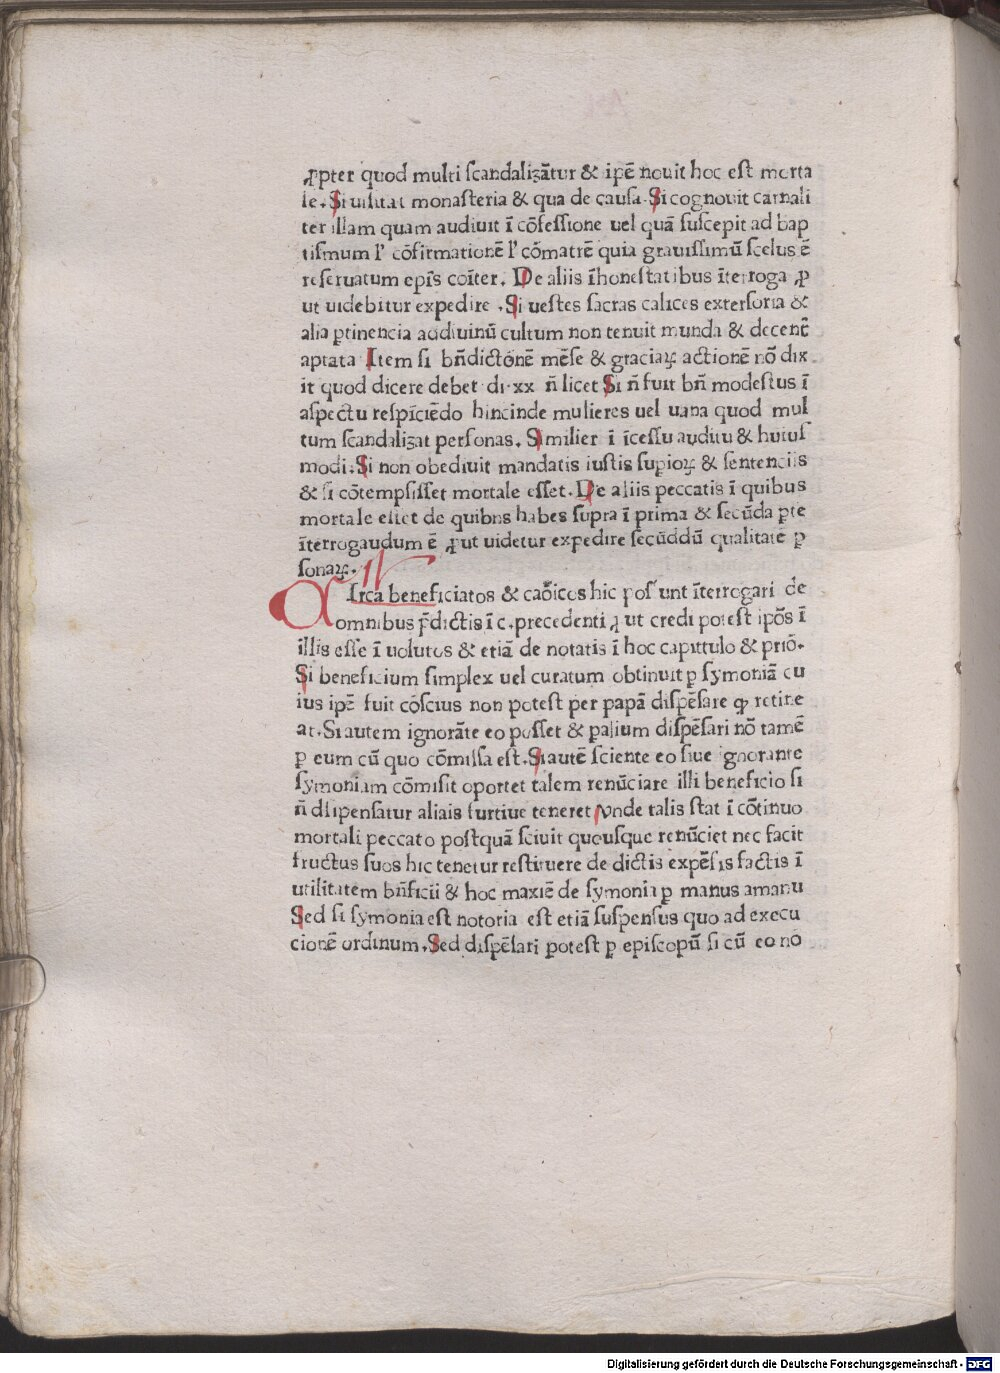 ꝓpter quod multi ſcandalizāt̄ur & ipē nouit hoc est morta
le. Si uiſitat monaſteria & qua de cauſa. Si cognouit carnali
ter illam quam audiuit ī cōfeſſione uel quā ſuſcepit ad bap
tiſmum l' cōfirmationē l' cōmatrē quia grauiſſimū ſcelus ē
reſeruatum epīs coīter. De aliis īhoneſtatibus īterroga ꝓ
ut uidebitur expedire. Si ueſtes ſacras calices exterſoria &
alia ꝑtinencia addiuinū cultum non tenuit munda & decenē
aptata Item ſi bn̄dictōnē mēſe & graciaꝝ actionē nō dix
it quod dicere debet di·xx n̄ licet Si n̄ fuit bn̄ modeſtus ī
aſpectu reſpīciēdo hincinde mulieres uel uana quod mul
tum ſcandalizat perſonas. Similier ī īceſſu auditu & huiuſ
modi: Si non obediuit mandatis iuſtis ſupioꝝ & ſentenciis
& ſi cōtempſiſſet mortale eſſet. De aliis peccatis ī quibus
mortale eſſet de quibns habes ſupra ī prima & ſecūda ꝑte
īterrogaudum ē ꝓut uidetur expedire ſecūddū qualitatē ꝑ
ſonaꝝ.
CIrca beneficiatos & caōicos hic poſſunt īterrogari de
omnibus p̄dictis ī c. precedenti ꝓut credi poteſt ipōs ī
illis eſſe ī uolutos & etiā de notatis ī hoc capittulo & priō.
Si beneficium ſimplex uel curatum obtinuit ꝑ ſymoniā cu
ius ipē fuit cōſcius non poteſt per papā diſpēſare ꝙ retine
at. Si autem ignorāte eo poſſet & palium diſpēſari nō tamē
ꝑ eum cū quo cōmiſſa eſt. Si autē ſciente eo ſiue ignorante
ſymoniam cōmiſit oportet talem renūciare illi beneficio ſi
n̄ dſipenſatur aliais furtiue teneret vnde talis ſtat ī cōtinuo
mortali peccato poſtquā ſciuit quouſque renūciet nec facit
fructus ſuos hic tenetur reſtituere de dictis expēſis factis ī
utilitatem bn̄ficii & hoc maxīe de ſymonia ꝑ manus amanu
Sed ſi ſymonia eſt notoria eſt etiā ſuſpenſus quo ad execu
cionē ordinum. Sed diſpēſari poteſt ꝑ epiſcopū ſi cū eo nō
Digitalisierung gefördert durch die Deutsche Forschungsgemeinschaft - DFG